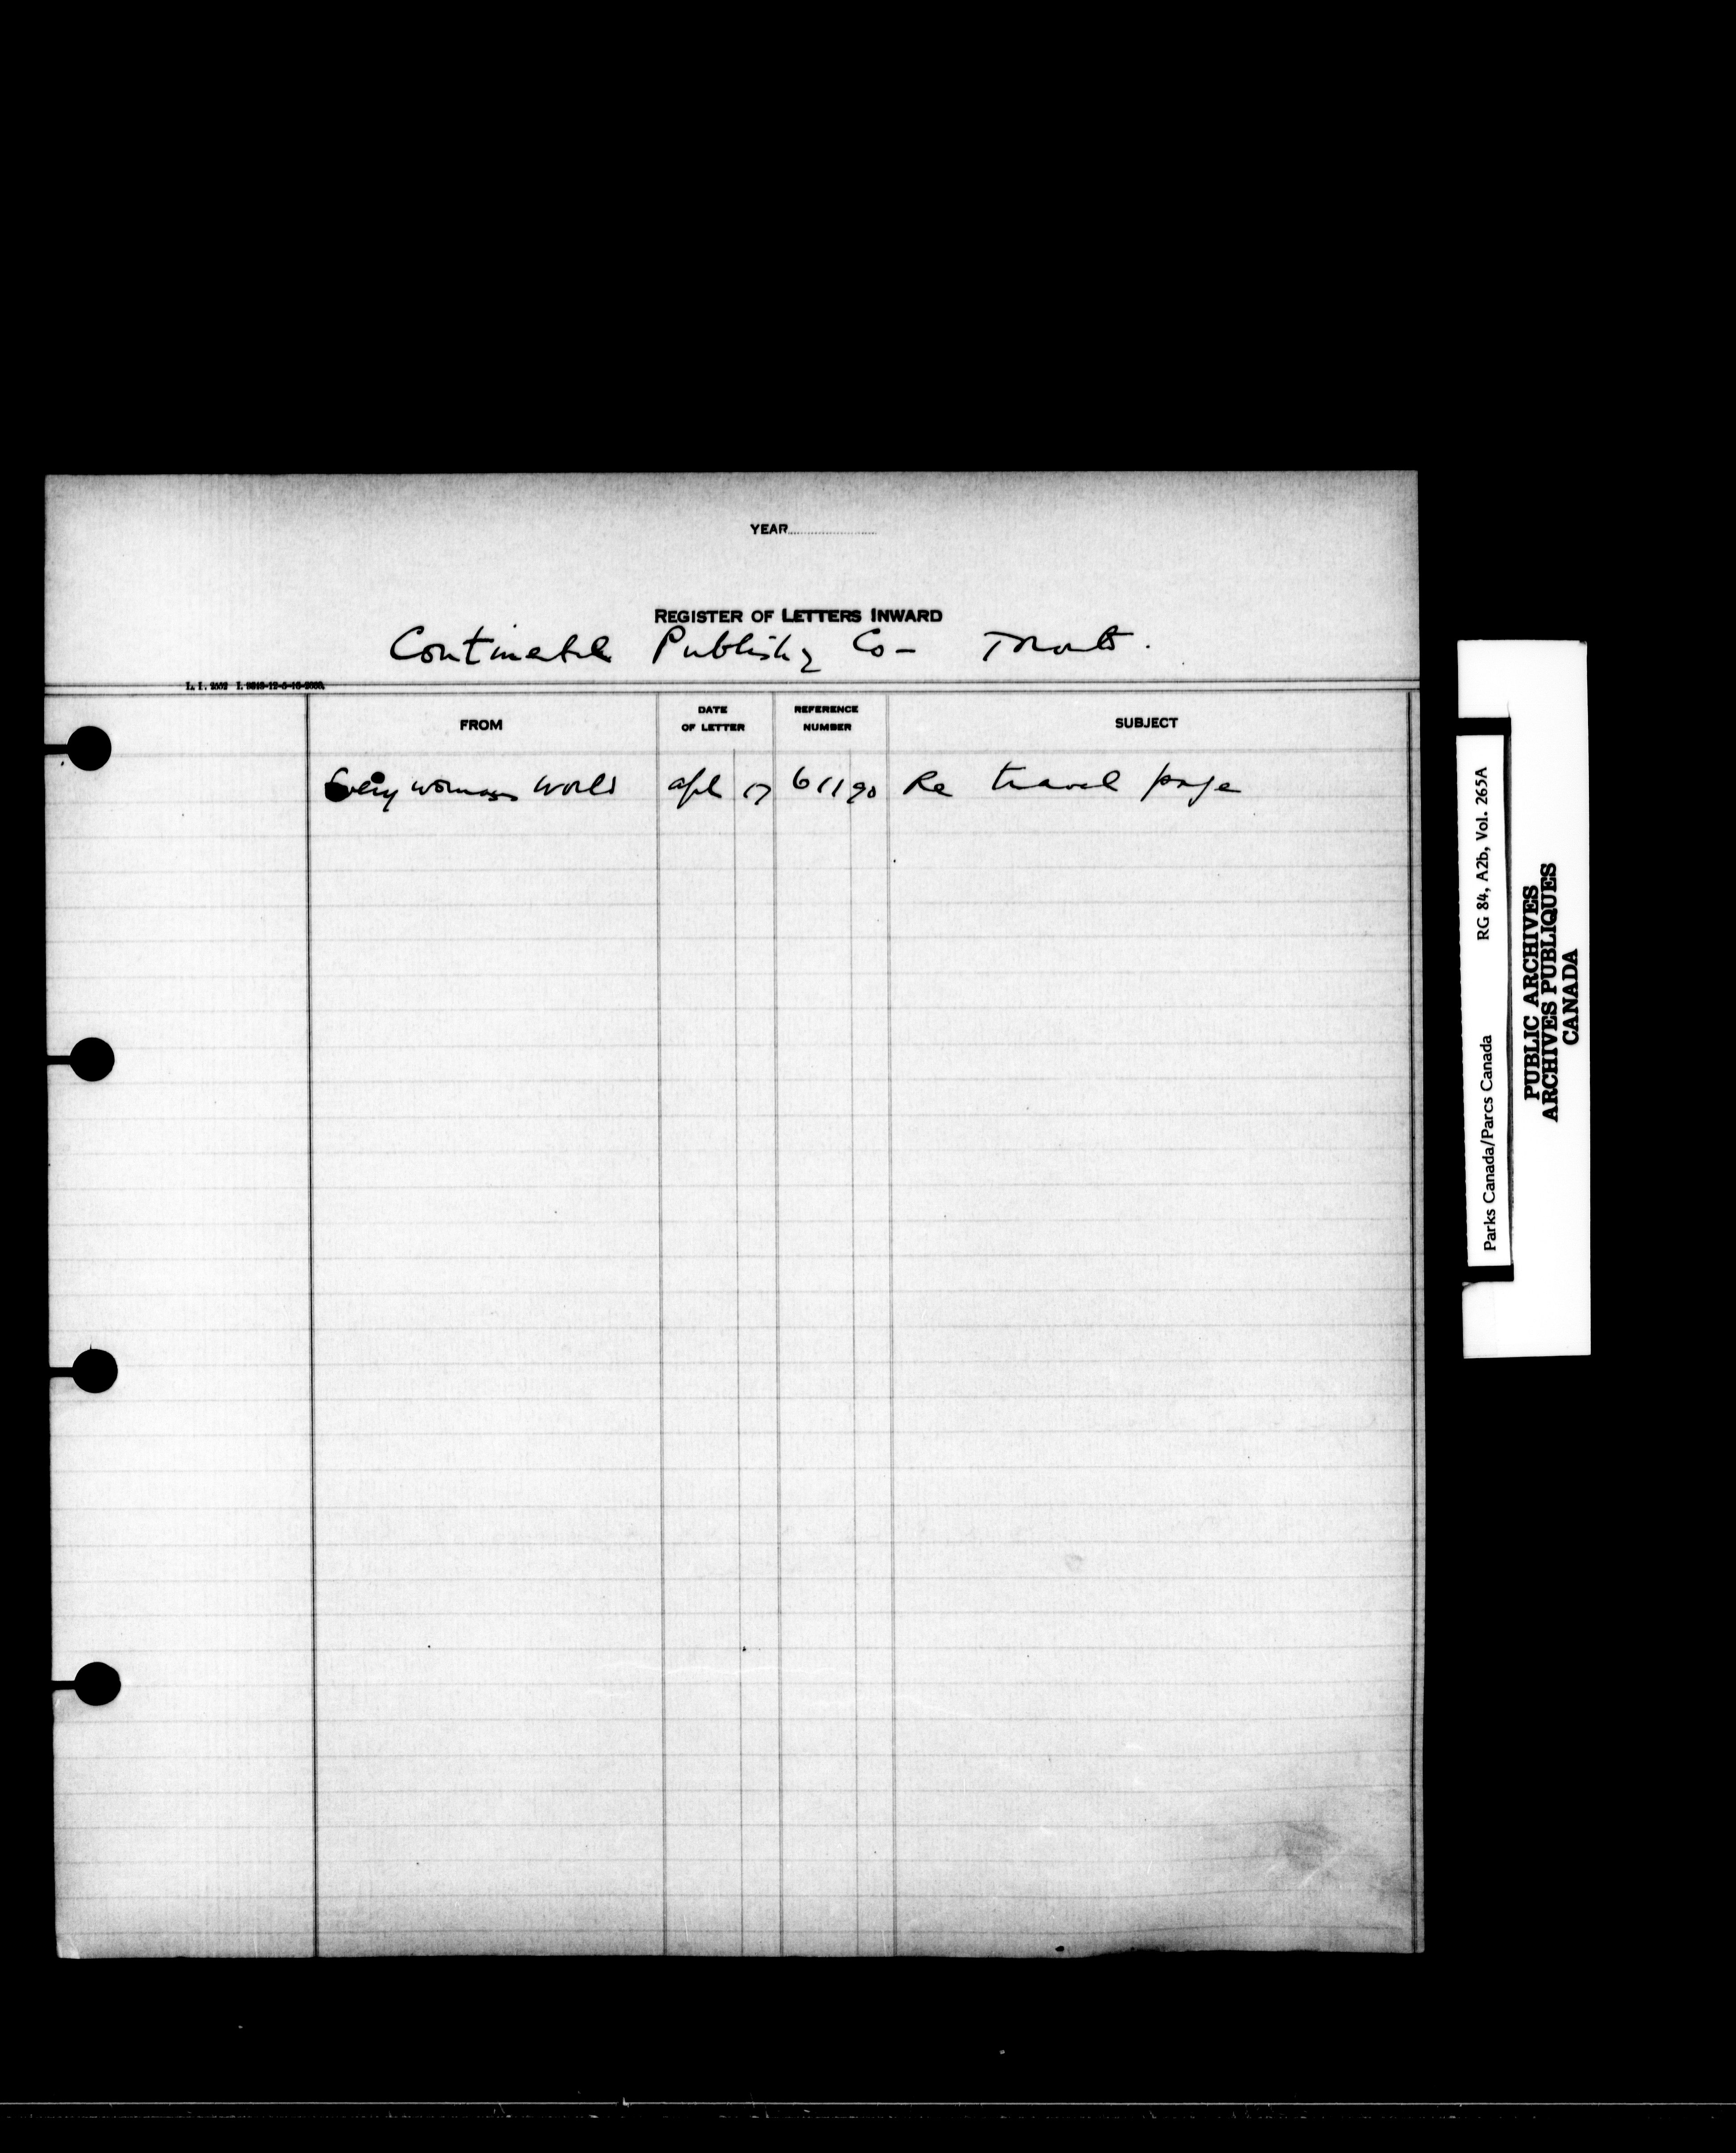 YEAR
REGISTER OF LETTERS INWARD
Continental Publishing Co - Toronto.
FROM DATE OF LETTER REFERENCE NUMBER SUBJECT
Every womans World apl 17 61190 Re travel page
Parks Canada/Parcs Canada RG 84, A2b, Vol. 265A
PUBLIC ARCHIVES
ARCHIVES PUBLIQUES
CANADA